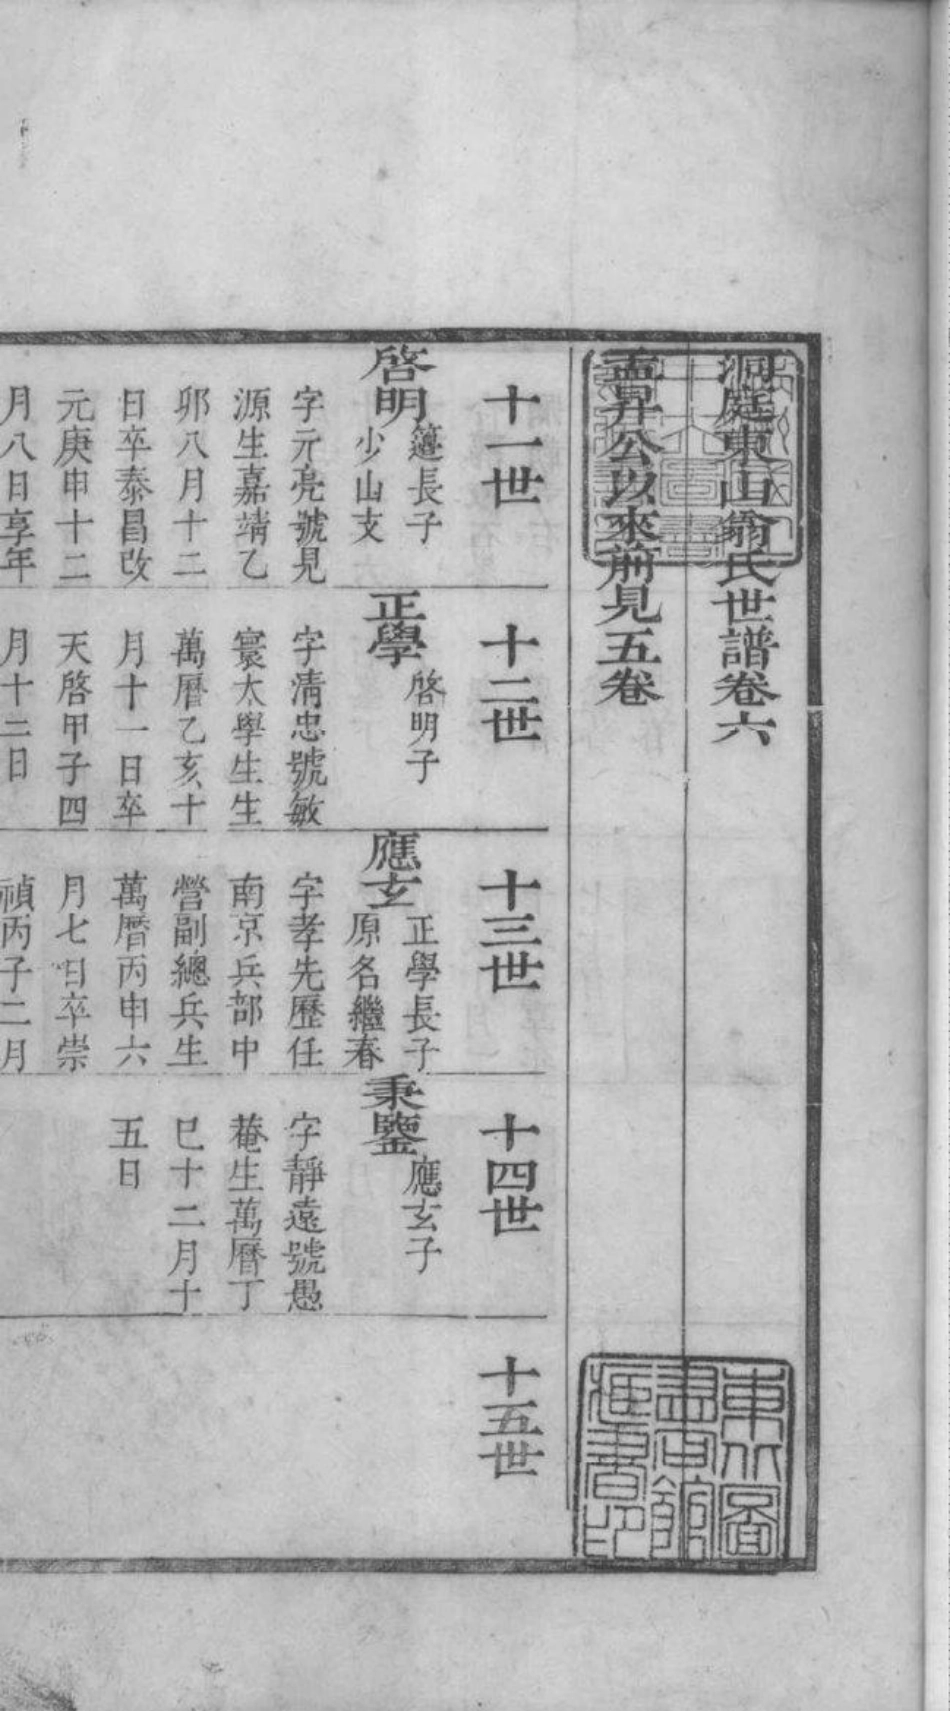 洞庭東山翁氏世譜卷六
孟昇公以來前見五卷
十一世
啓明
籩長子
少山支
字元亮號見
源生嘉靖乙
卯八月十二
日卒泰昌改
元庚申十二
月八日享年
十二世
正學
啓明子
字清忠號敏
寰太學生生
萬曆乙亥十
月十一日卒
天啓甲子四
月十二日
十三世
應玄
正學長子
原名繼春
字孝先歷任
南京兵部中
營副總兵生
萬曆丙申六
月七日卒崇
禎丙子二月
十四世
秉鑒
應玄子
字靜遠號愚
菴生萬曆丁
巳十二月十
五日
十五世
東北圖
書館
藏書印